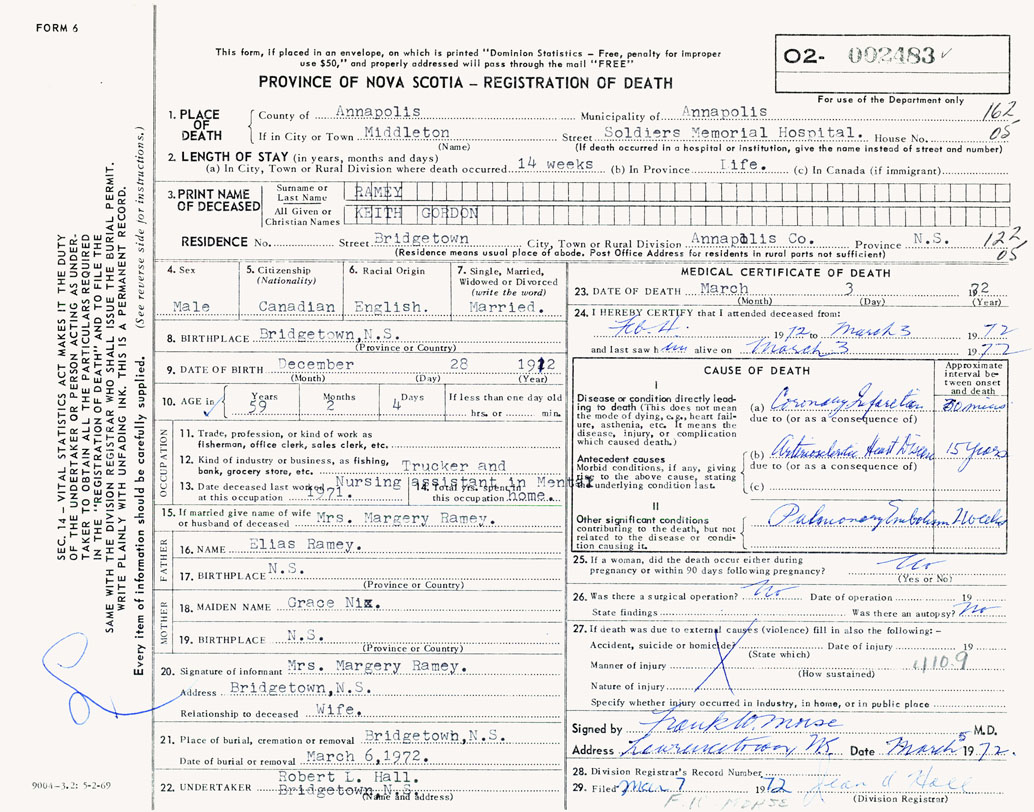 FORM 6
This form, if placed in an envelope, on which is printed "Dominion Statistics – Free, penalty for improper
use $50," and properly addressed will pass through the mail "FREE"
PROVINCE OF NOVA SCOTIA – REGISTRATION OF DEATH
02- 002483
For use of the Department only
1. PLACE OF DEATH
County of Annapolis Municipality of Annapolis 162
If in City or Town Middleton Street Soldiers Memorial Hospital. House No. 05
(Name) (If death occurred in a hospital or institution, give the name instead of street and number)
2. LENGTH OF STAY (in years, months and days)
(a) In City, Town or Rural Division where death occurred 14 weeks (b) In Province Life. (c) In Canada (if immigrant)
3. PRINT NAME OF DECEASED
Surname or Last Name RAMEY
All Given or Christian Names KEITH GORDON
RESIDENCE No. Street Bridgetown City, Town or Rural Division Annapolis Co. Province N.S. 122
(Residence means usual place of abode. Post Office Address for residents in rural parts not sufficient) 05
4. Sex
Male
5. Citizenship
(Nationality)
Canadian
6. Racial Origin
English.
7. Single, Married,
Widowed or Divorced
(write the word)
Married.
8. BIRTHPLACE Bridgetown,N.S.
(Province or Country)
9. DATE OF BIRTH December 28 1912
(Month) (Day) (Year)
10. AGE in Years Months Days If less than one day old
59 2 4 hrs. or min.
OCCUPATION
11. Trade, profession, or kind of work as
fisherman, office clerk, sales clerk, etc.
12. Kind of industry or business, as fishing,
bank, grocery store, etc. Trucker and
Nursing assistant in Mental
13. Date deceased last worked
at this occupation 1971.
14. Total yrs. spent in
this occupation home.
15. If married give name of wife
or husband of deceased Mrs. Margery Ramey.
FATHER
16. NAME Elias Ramey.
17. BIRTHPLACE N.S.
(Province or Country)
MOTHER
18. MAIDEN NAME Grace Nix.
19. BIRTHPLACE N.S.
(Province or Country)
20. Signature of informant Mrs. Margery Ramey.
Address Bridgetown,N.S.
Relationship to deceased Wife.
21. Place of burial, cremation or removal Bridgetown,N.S.
Date of burial or removal March 6,1972.
Robert L. Hall.
22. UNDERTAKER Bridgetown,N.S.
(Name and address)
MEDICAL CERTIFICATE OF DEATH
23. DATE OF DEATH March 3 1972
(Month) (Day) (Year)
24. I HEREBY CERTIFY that I attended deceased from:
Feb. 4 1972 to March 3 1972
and last saw him alive on March 3 1972
CAUSE OF DEATH
Approximate
interval be-
tween onset
and death
I
Disease or condition directly lead-
ing to death (This does not mean
the mode of dying, e.g., heart fail-
ure, asthenia, etc. It means the
disease, injury, or complication
which caused death.)
(a) Coronary Infarction 30 mins
due to (or as a consequence of)
Antecedent causes
Morbid conditions, if any, giving
rise to the above cause, stating
the underlying condition last.
(b) Arteriosclerotic Heart Disease 15 Years
due to (or as a consequence of)
(c)
II
Other significant conditions
contributing to the death, but not
related to the disease or condi-
tion causing it.
Pulmonary Embolism 2 weeks
25. If a woman, did the death occur either during
pregnancy or within 90 days following pregnancy? No
(Yes or No)
26. Was there a surgical operation? No Date of operation 19
State findings Was there an autopsy? No
27. If death was due to external causes (violence) fill in also the following: –
Accident, suicide or homicide? Date of injury 19
(State which)
Manner of injury 410.9
(How sustained)
Nature of injury
Specify whether injury occurred in Industry, in home, or in public place
Signed by Frank W. Morse M.D.
Address Lawrencetown NS Date March 5 1972.
28. Division Registrar's Record Number
29. Filed Mar 7 1972 Jean A Hall
F. W. MORSE (Division Registrar)
SEC. 14 – VITAL STATISTICS ACT MAKES IT THE DUTY
OF THE UNDERTAKER OR PERSON ACTING AS UNDER-
TAKER TO OBTAIN ALL THE PARTICULARS REQUIRED
IN THE "REGISTRATION OF DEATH" AND TO FILE THE
SAME WITH THE DIVISION REGISTRAR WHO SHALL ISSUE THE BURIAL PERMIT.
WRITE PLAINLY WITH UNFADING INK. THIS IS A PERMANENT RECORD.
Every item of information should be carefully supplied. (See reverse side for instructions.)
9004-3.2: 5-2-69